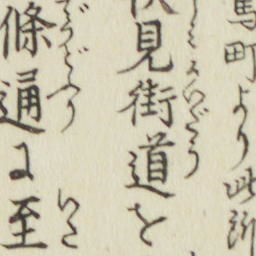 馬町より此所
伏見街道を
條通に至